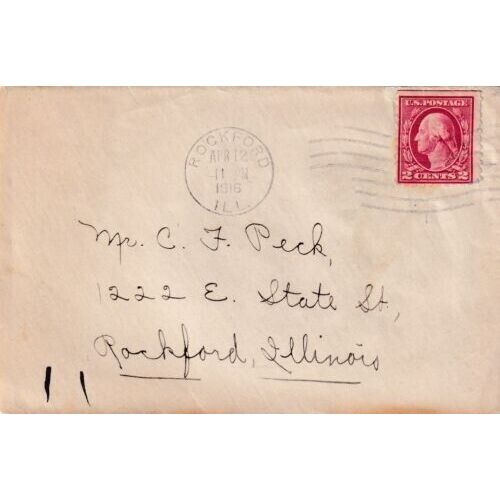 U.S. POSTAGE
2 CENTS 2
ROCKFORD
APR 12
11 PM
1916
ILL.
Mr. C. F. Peck,
1222 E. State St.,
Rockford, Illinois
11